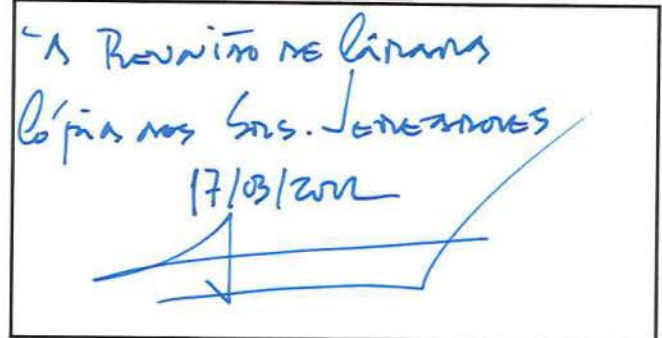 À Reunião de Câmara
Cópia aos Srs. Vereadores
17/03/2022